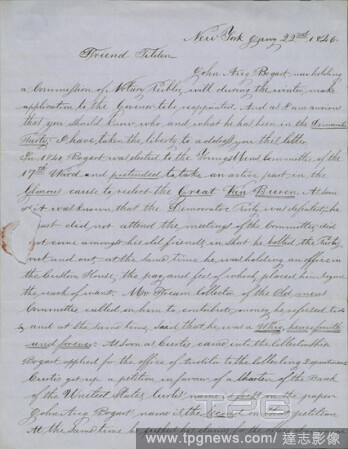 New York Jany 22nd 1846
Friend Tilden
John Aug Bogart now holding
a Commission of Notary Public, will during the winter, make
application to the Governor to be reappointed. And as I am anxious
that you should know who, and what he has been in the Democratic
Party, I have taken the liberty to address you this letter
In 1840 Bogart was elected to the Young Mens Committee of the
17th Ward and pretended to take an active part in the
Glorious cause to reelect the Great Van Buren. As soon
as it was known that the Democratic Party was defeated, he
just did not attend the meetings of the Committee, did
not once amongst his old friends, in short he bolted the Party
out and out, at the same time he was holding an office in
the Custom House, the pay and feef of which, placed him beyond
the reach of want. Mr Stream Collector of the Old ment
Committee called on him to contribute money, he refused to do
so and at the same time, said that he was a Whig, henceforth
and forever. As soon as Curtis came into the Collectorship
Bogart applied for the office of
Curtis got up a petition in favour of a Charter of the Bank
of the United States, Curtis' name is first on the paper
John Aug Bogart name is the second on the petition
At the same time he
www.tpgnews.com 達志影像